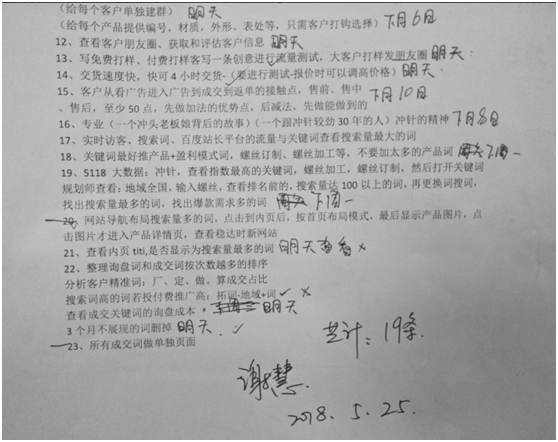 （给每个客户单独建群） 明天
（给每个产品提供编号，材质，外形、表处等，只需客户打钩选择） 下月6日
12、查看客户朋友圈、获取和评估客户信息 明天
13、写免费打样、付费打样客写一条创意进行流量测试，大客户打样发朋友圈 明天
14、交货速度快，快可4小时交货-（要进行测试-报价时可以调高价格） 明天.
15、客户从看广告进入广告到成交到返单的接触点，售前、售中
、售后，至少50点，先做加法的优势点，后减法，先做能做到的 下月10日
16、专业（一个冲头老板娘背后的故事）（一个跟冲针较劲30年的人）冲针的精神 下月8日
17、实时访客、搜索词、百度站长平台的流量与关键词查看搜索量最大的词
18、关键词最好推产品+盈利模式词，螺丝订制、螺丝加工等，不要加太多的产品词 下周一
19、5118大数据：冲针，查看指数最高的关键词，螺丝加工，螺丝订制，然后打开关键词
规划师查看：地域全国，输入螺丝，查看排名前的，搜索量达100以上的词，再更换词搜词，
找出搜索量最多的词，找出爆款需求多的词 下周一
20、网站导航布局搜索量多的词，点击到内页后，按首页布局模式，最后显示产品图片，点
击图片才进入产品详情页，查看稳达时新网站
21、查看内页titi,是否显示为搜索量最多的词 明天查看 ×
22、整理询盘词和成交词按次数越多的排序
分析客户精准词：厂、定、做。算成交占比
搜索词高的词若投付费推广高：拓词-地域+词 ✓ ×
查看成交关键词的询盘成本。 明天
3个月不展现的词删掉 明天. ✓
23、所有成交词做单独页面
共计：19条.
谢慧.
2018.5.25.